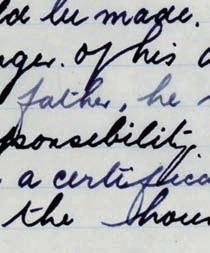 ld be made.
ger. of his
father, he
ponsibility
a certifica
the hou